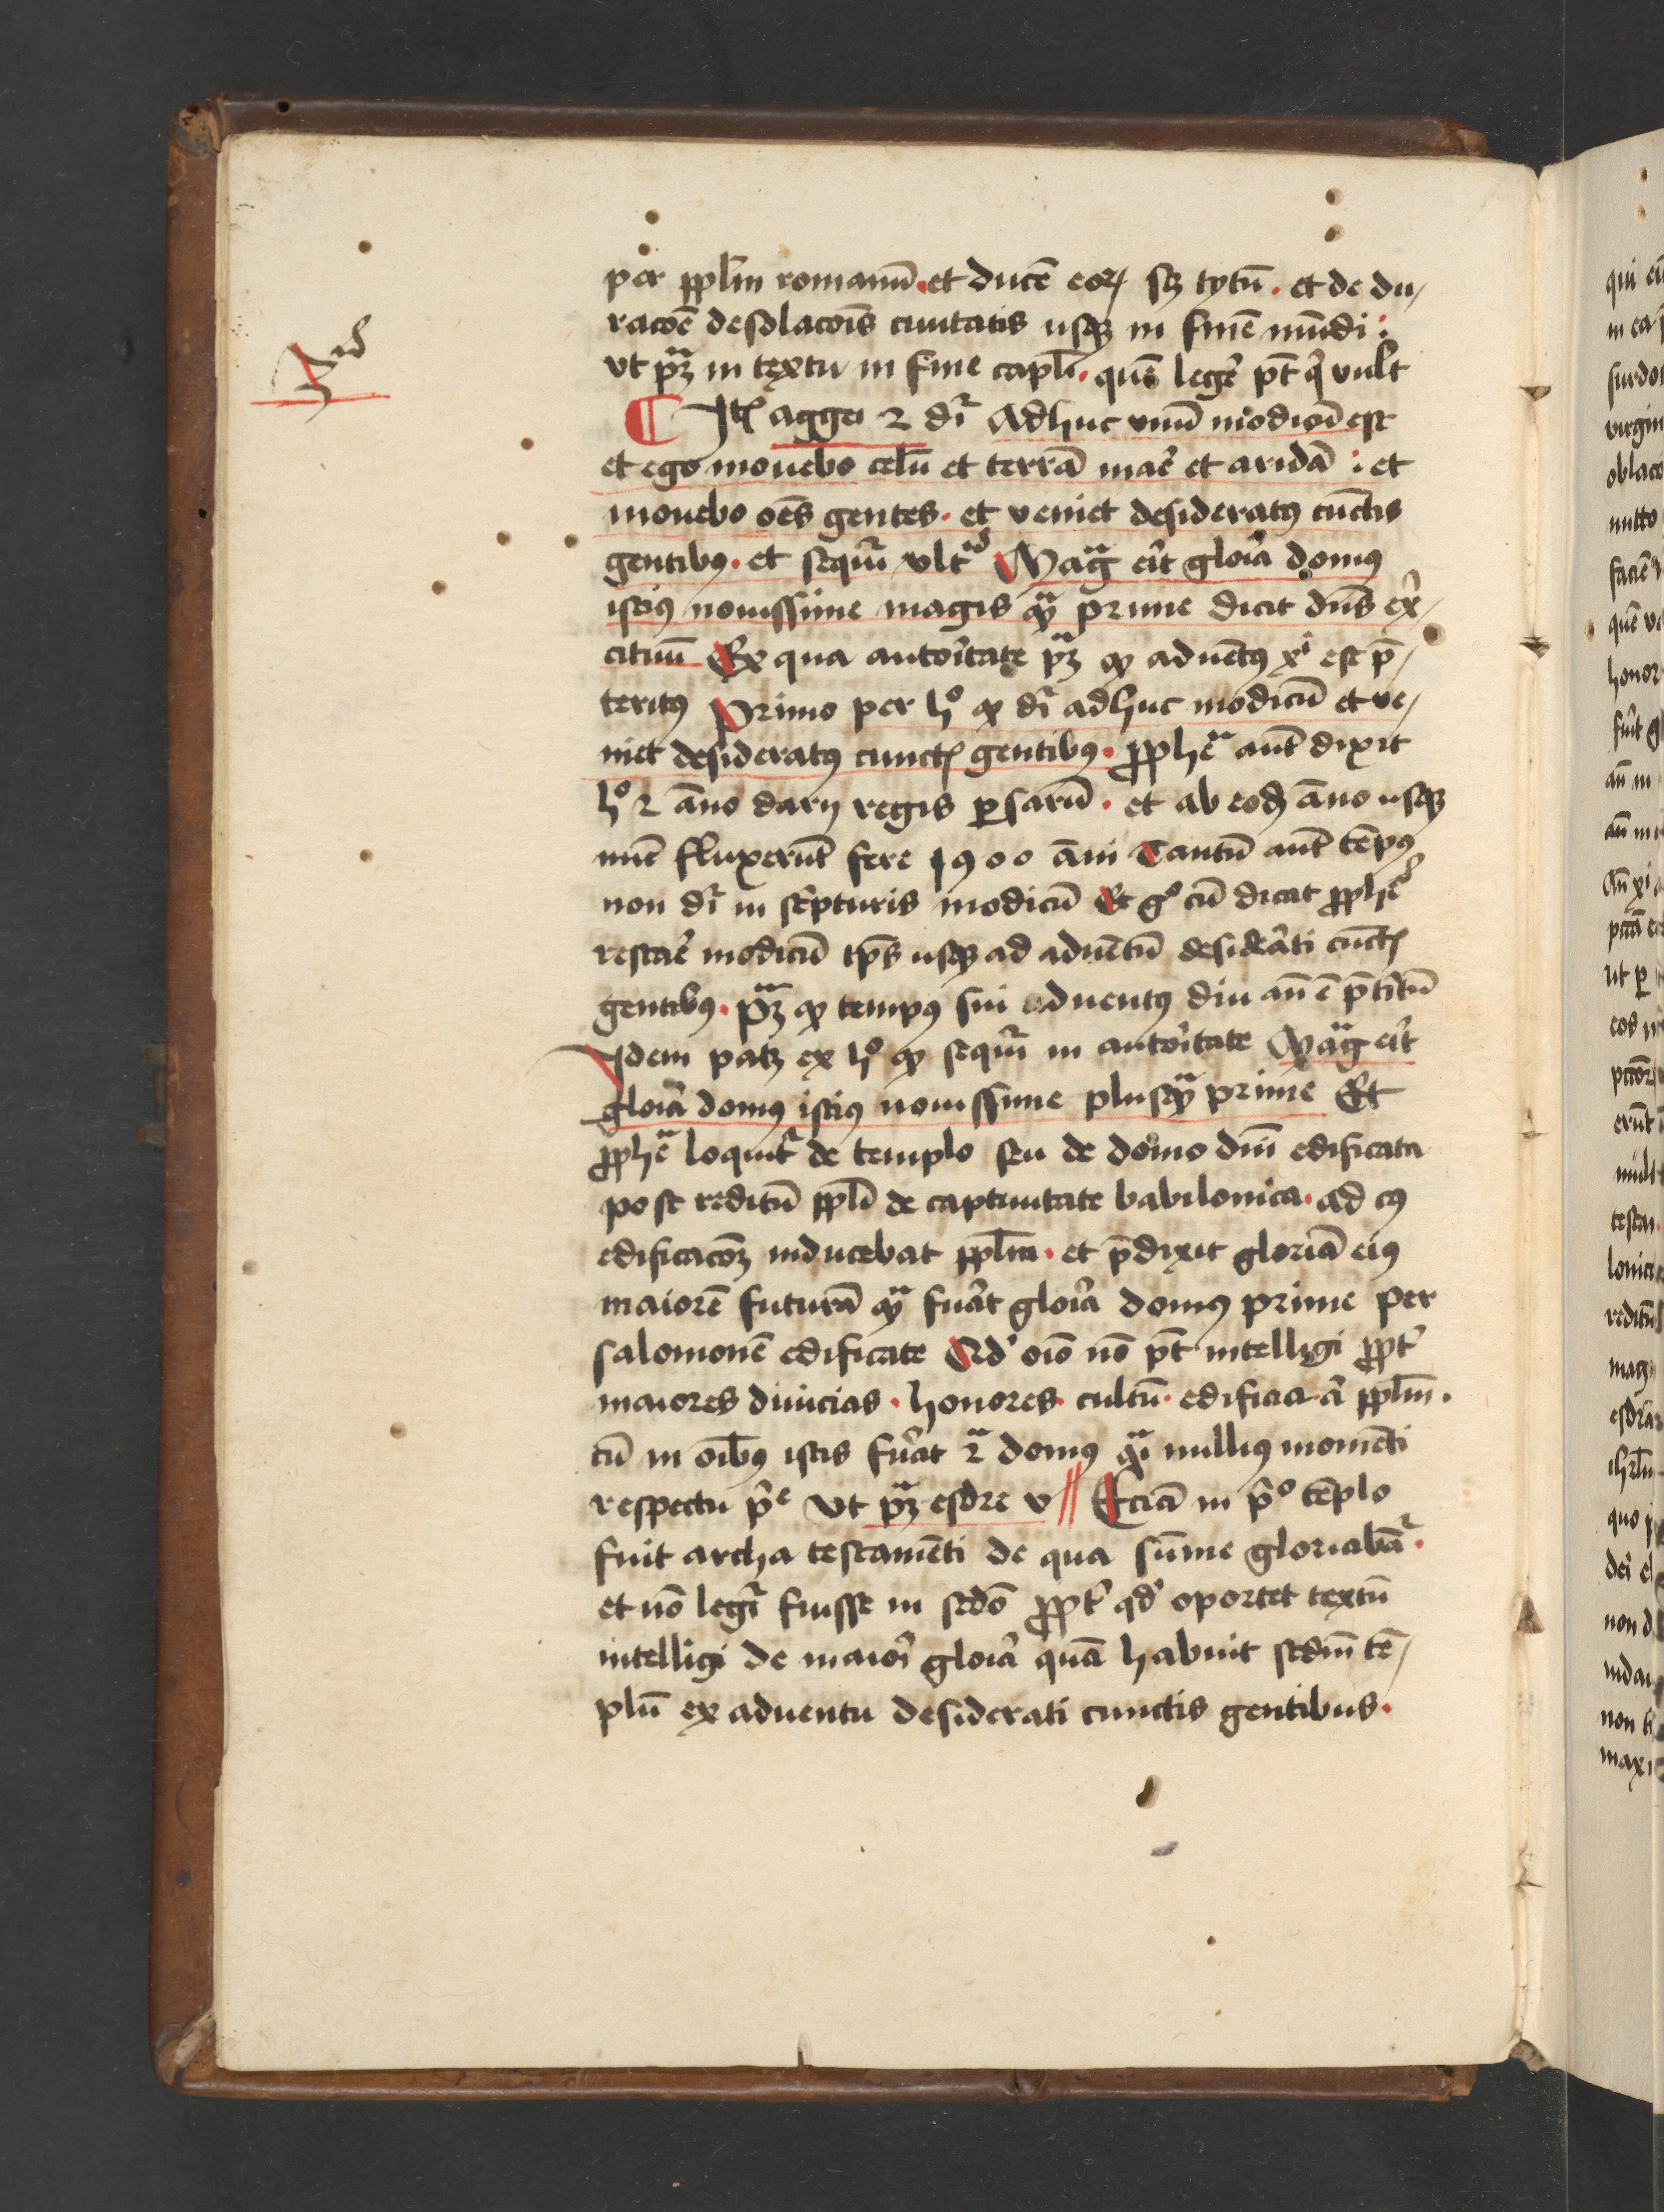 3ᵈ
per pplm̄ romanū · et ducē eoꝝ sꝫ tytū · et de du/
racoē desolacoīs ciuitatis usqꝫ in finē mūdi :
vt pꝫ in textu in fine capl̄i · quē legē p̄t qͥ vult
¶ Itē aggei 2 dr̄ Adhuc vnū modicū est
et ego mouebo celū et terrā mar̄ et aridā : et
mouebo oēs gentes · et veniet desideratꝰ cūctis
gentibꝰ · et sequir̄ vltᵃ Magᵃ erit gloīa domꝰ
istiꝰ nouissime magis qᵃꝫ prime dicit dn̄s ex̄/
cituū Ex qua autoītate pꝫ ꝙ aduētꝰ xⁱ est p̄/
teritꝰ Primo per hº ꝙ dr̄ adhuc modicū et ve/
niet desideratꝰ cunctꝭ gentibꝰ · ꝓphēᵃ aūt dixit
hº 2 āno darij regis ꝑsarū · et ab eodꝫ āno usqꝫ
nūc fluxerūt fere 1900 āni Tantū aūt tēpꝰ
non dr̄ in scͥpturis modicū Et gº cū dicat ꝓphēᵃ
restar̄ modicū tp̄s usqꝫ ad aduētū desideāti cūctꝭ
gentibꝰ · pᵃꝫ ꝙ tempꝰ sui aduentꝰ diu aū ē p̄titū
Idem patꝫ ex hº ꝙ sequir̄ in autoītate Magᵃ erit
gloīa domꝰ istiꝰ nouissime plusqᵃꝫ prime Et
ꝓphēᵃ loquit̄ de templo seu de domo dn̄i edificata
post reditū ppl̄i de captiuitate babilonica · ad cꝰ
edificacoꝫ inducebat pplm̄ · et p̄dixit gloriā eiꝰ
maiorē futurā qᵃꝫ fuāt gloīa domꝰ prime per
salomonē edificate Qdͥ oīo nō p̄t intelligi ꝓpt̄
maiores diuicias · honores · cultū · edificia · ā pplm̄ ·
cū in oībꝰ istis fuāt 2ᵃ domꝰ qᵃi nulliꝰ momēti
respectu pͥᵉ Vt pᵃꝫ esdre v // Eciā in pͥº tēplo
fuit archa testamēti de qua sūme gloriabāt̄ ·
et nō legit̄ fuisse in sedō ꝓpt̄ qdͥ oportet textū
intelligi de maiorͥ gloīa quā habuit sedm̄ tē/
plū ex aduentu desiderati cunctis gentibus ·